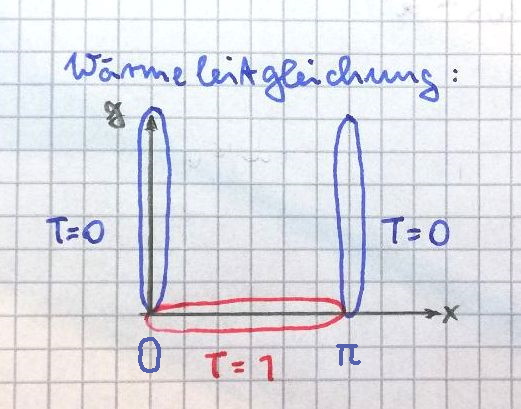 Wärmeleitgleichung:
y
T=0 T=0
x
0 T=1 π